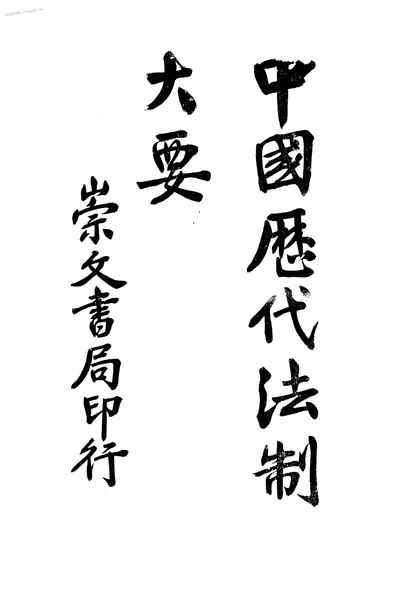 中國歷代法制
大要
崇文書局印行